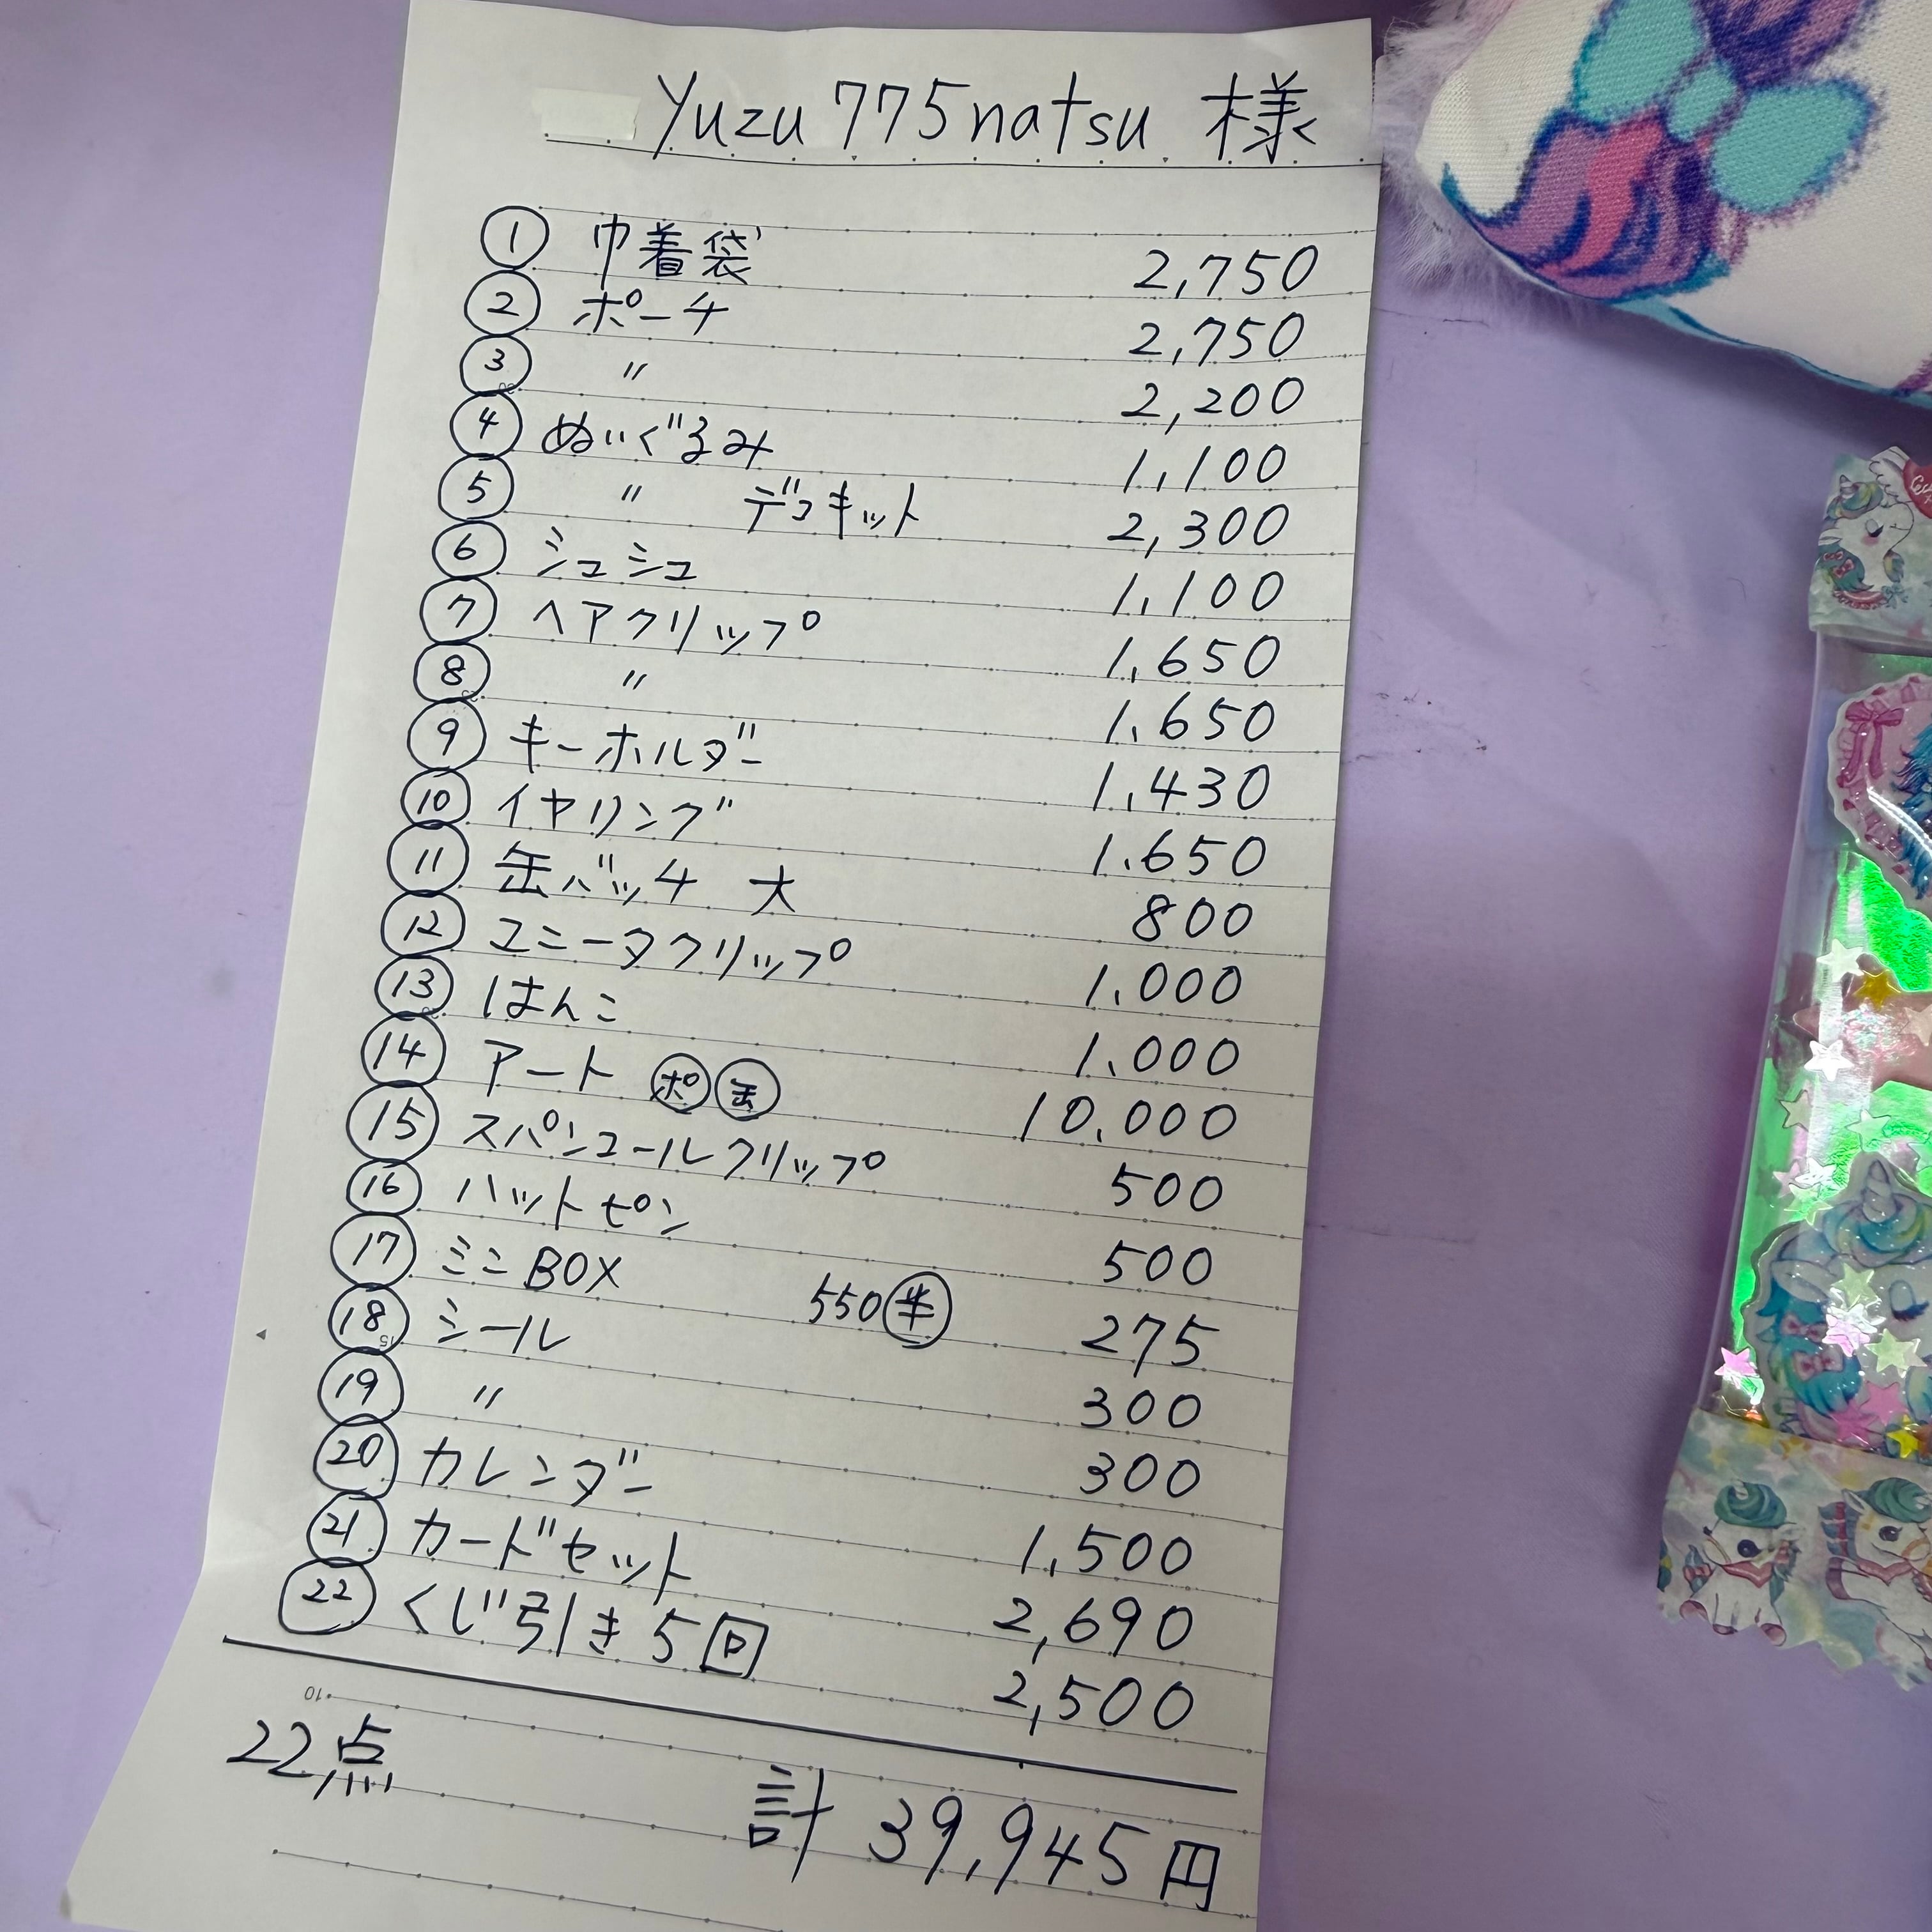 Yuzu775natsu 様
① 巾着袋 2,750
② ポーチ 2,750
③ 〃 2,200
④ ぬいぐるみ 1,100
⑤ 〃 デコキット 2,300
⑥ シュシュ 1,100
⑦ ヘアクリップ 1,650
⑧ 〃 1,650
⑨ キーホルダー 1,430
⑩ イヤリング 1,650
⑪ 缶バッチ 大 800
⑫ ユニータクリップ 1,000
⑬ はんこ 1,000
⑭ アート ㋭゚ ⓪缶 10,000
⑮ スパンコールクリップ 500
⑯ ハットピン 500
⑰ ミニBOX 550 半 275
⑱ シール 300
⑲ 〃 300
⑳ カレンダー 1,500
㉑ カードセット 2,690
㉒ くじ引き5回 2,500
22点
計 39,945円